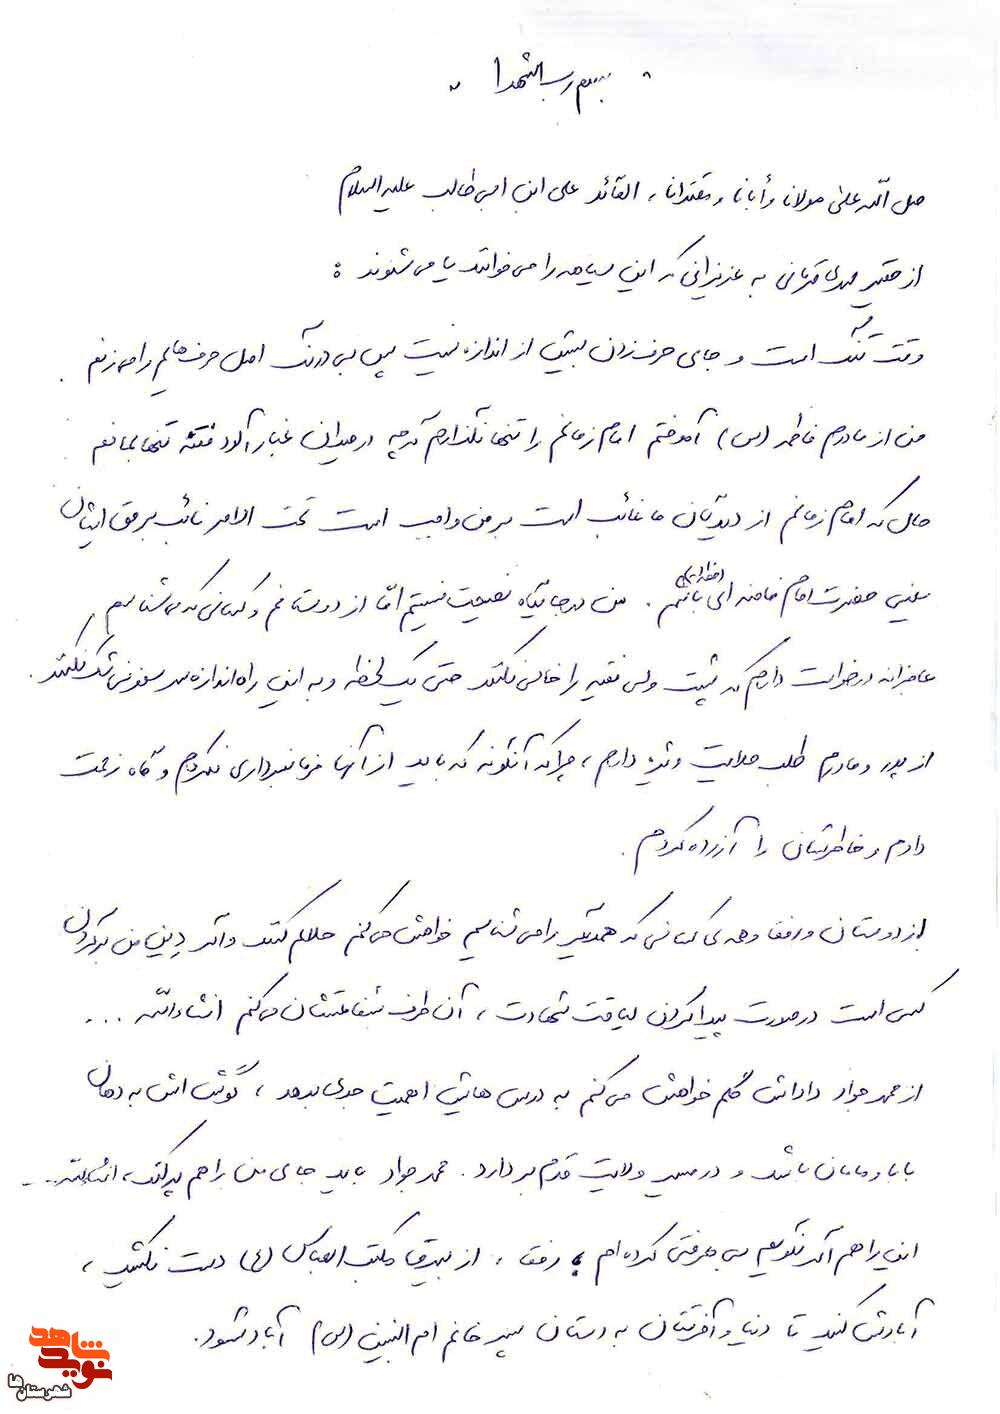 بسم رب الشهدا
صل الله علی مولانا و أبانا و مقتدانا، القائد علی ابن ابی طالب علیه السلام
از حقیر مهدی قربانی به عزیزانی که این سیاهه را می خوانند یا می شنوند :
وقت تنگ است و جای حرف زدن بیش از اندازه نیست پس بی درنگ اصل حرف هایم را می زنم .
من از مادرم فاطمه (س) آموختم امام زمانم را تنها نگذارم گرچه در میدان غبار آلود فتنه تنها بمانم
حال که امام زمانم از دیدگان ما غائب است بر من واجب است تحت الامر نائب برحق ایشان
یعنی حضرت امام خامنه ای (حفظه الله) باشم . من در جایگاه نصیحت نیستم امّا از دوستانم و کسانی که می شناسم ،
عاجزانه درخواست دارم که پشت ولی فقیه را خالی نکنند حتی یک لحظه و به این راه اندازه سر سوزنی شک نکنند .
از پدر و مادرم طلب حلالیت ویژه دارم ، چرا که آنگونه که باید از آنها فرمانبرداری نکردم و گاه زحمت
دادم و خاطرتان را آزرده کردم .
از دوستان و رفقا و همه ی کسانی که همدیگر را می شناسیم خواهش می کنم حلالم کنند و اگر دِینِ من بر گردن
کسی است در صورت پیدا کردن لیاقت شهادت ، آن طرف شفاعتشان می کنم انشاءالله ...
از محمد جواد داداش گلم خواهش می کنم به درس هایش اهمیت جدی بدهد ، گوش اش به دهان
بابا و مامان باشد و در مسیر ولایت قدم بردارد . محمد جواد باید جای من را هم پر کند ، انشاءالله ...
این را هم اگر نگویم بی معرفتی کرده ام ، رفقا ، از بیرق مکتب العباس (ع) دست نکشید ،
آبادش کنید تا دنیا و آخرتتان به دستان پسر خانم ام البنین (س) آباد شود .
نوید شاهد
شهرستان ها